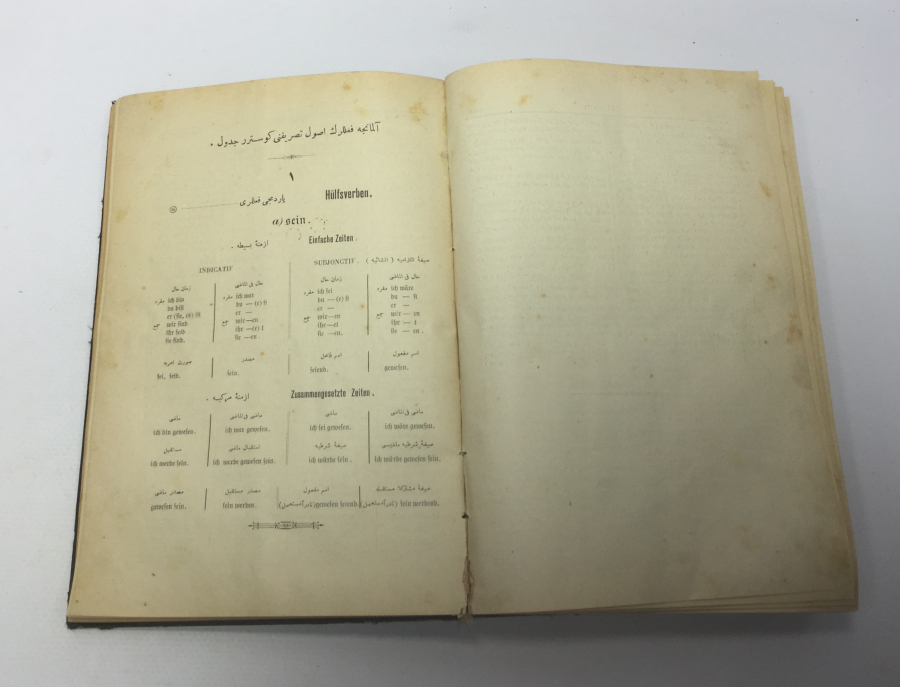 آلمانجه فعللرك اصول تصريفنى كوسترر جدول .
١
ياردمجى فعللرى Hülfsverben.
a) sein.
ازمنهٔ بسيطه . Einfache Zeiten.
INDICATIF SUBJONCTIF. صيغهٔ التزاميه ( انشائيه )
زمان حال حال فى الماضى زمان حال حال فى الماضى
مفرد ich bin مفرد ich war مفرد ich sei مفرد ich wäre
du bist du — (e) st du — (e) st du — st
er (sie, es) ist er — er — er —
جمع wir sind جمع wir—en جمع wir—en جمع wir — en
ihr seid ihr —(e) t ihr—et ihr — t
sie sind. sie —en sie —en. sie — en.
صورت امريه مصدر اسم فاعل اسم مفعول
sei, seid. sein. seiend. gewesen.
ازمنهٔ مركبه . Zusammengesetzte Zeiten.
ماضى ماضى فى الماضى ماضى ماضى فى الماضى
ich bin gewesen. ich war gewesen. ich sei gewesen. ich wäre gewesen.
مستقبل استقبال ماضى صيغهٔ شرطيه صيغهٔ شرطيه ماضيسى
ich werde sein. ich werde gewesen sein. ich würde sein. ich würde gewesen sein.
مصدر ماضى مصدر مستقبل اسم مفعول صيغهٔ مشتركهٔ مستقبله
gewesen sein. sein werden. (نادراً مستعمل) gewesen seiend. (نادراً مستعمل) sein werdend.